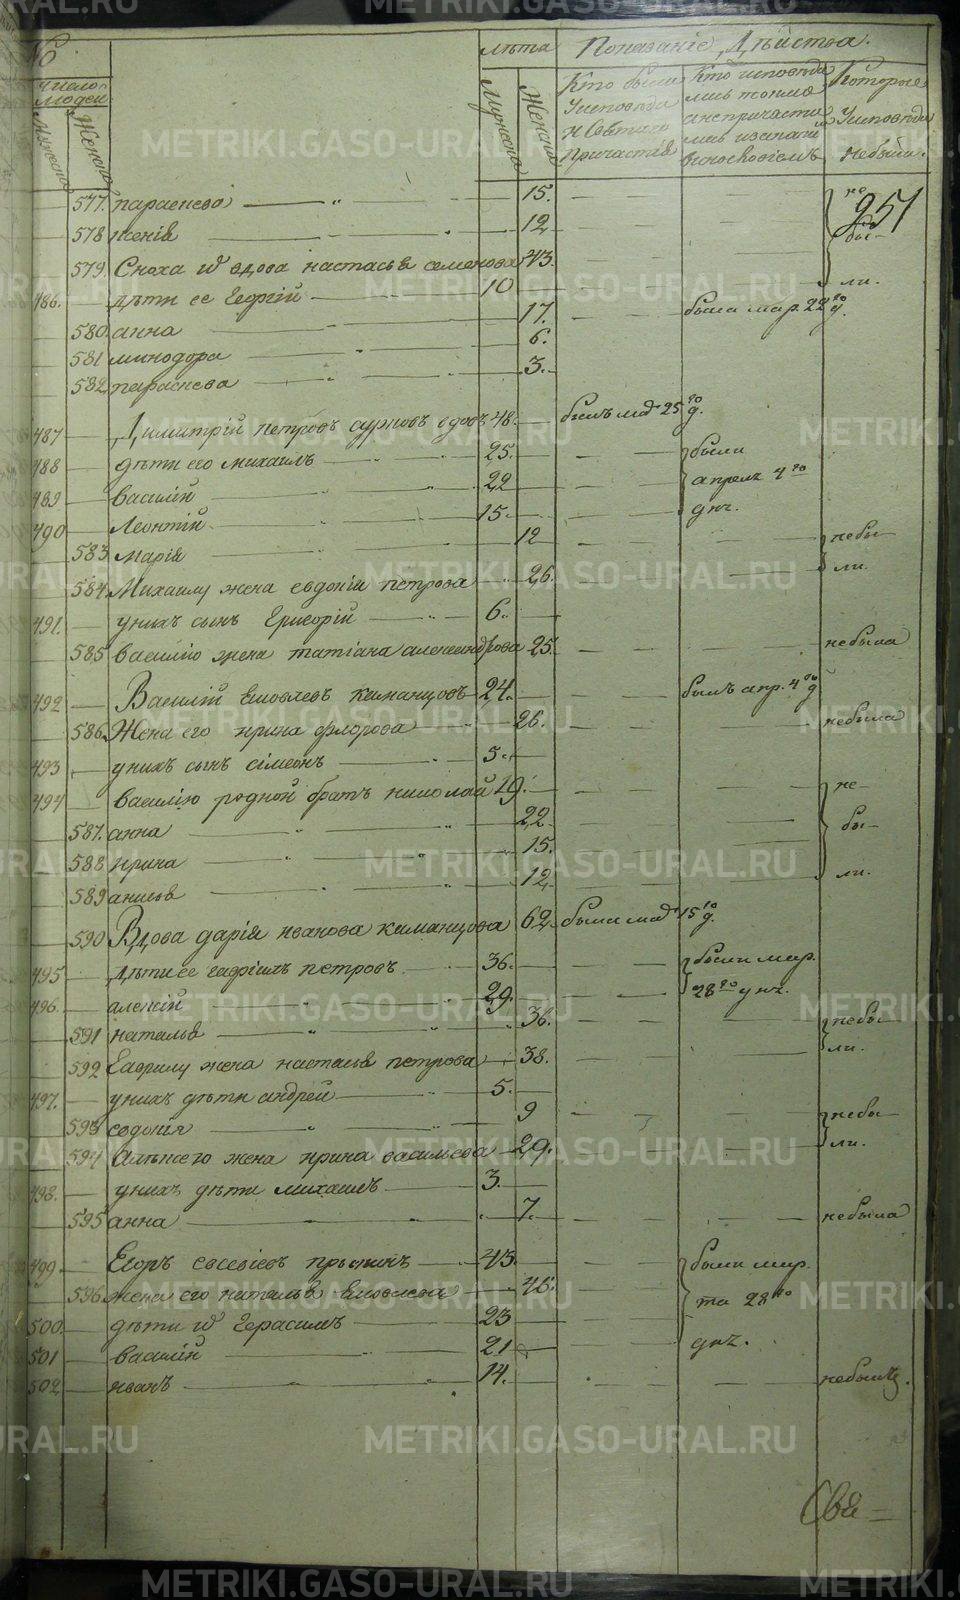 METRIKI.GASO-URAL.RU
№ лѣта Показаніе Дѣйства.
число людей
Мужеска Женска Мужеска Женска
Кто были Уисповѣди и Святаго Причастія
Кто исповѣда лись токмо анепричасти лись
Которые Уисповѣди небыли.
251
577. параскева 15. не
578 ксенія 12 бы-
579. Сноха вдова настасья семенова 43. ли.
486. дѣти ее Георгій 10
580. анна 17. были мар. 22го д.
581 минодора 6.
582 параскева 3.
487 Димитрій петровъ вдовъ 48. былъ 25го д.
488 дѣти его михаилъ 25. были
489 василій 22 апрел 4го
490 Леонтій 15. дня.
583 марія 12 небы-
584. Михаилу жена евдокія петрова 26. ли.
491. унихъ сынъ Григорій 6.
585 василію жена татіана александрова 25. небыла
492 Василій Яковлевъ каманцовъ 24. былъ апр. 4го д
586. Жена его ирина флорова 26. небыла
493 унихъ сынъ сімеонъ 5.
494 василію родной братъ николай 19. не-
587. анна 22. бы-
588 ирина 15. ли.
589 анисья 12.
590 Вдова дарія иванова каманцова 62. была 15го д.
495 дѣти ее гавріилъ петровъ 36. были мар.
496. алексій 29. 28го дня.
591 наталья 36. небы-
592 Гаврилу жена настасья петрова 38. ли.
497. унихъ дѣти андрей 5.
593 евдокія 9 небы-
594 Алексею жена ирина васильева 29. ли.
498. унихъ дѣти михаилъ 3.
595 анна 7. небыла
499 Егоръ евсевіевъ 43. были мар.
596. жена его наталья Яковлева 46. та 28го
500 дѣти Герасимъ 23 дня.
501 василій 21
502 иванъ 14. небылъ.